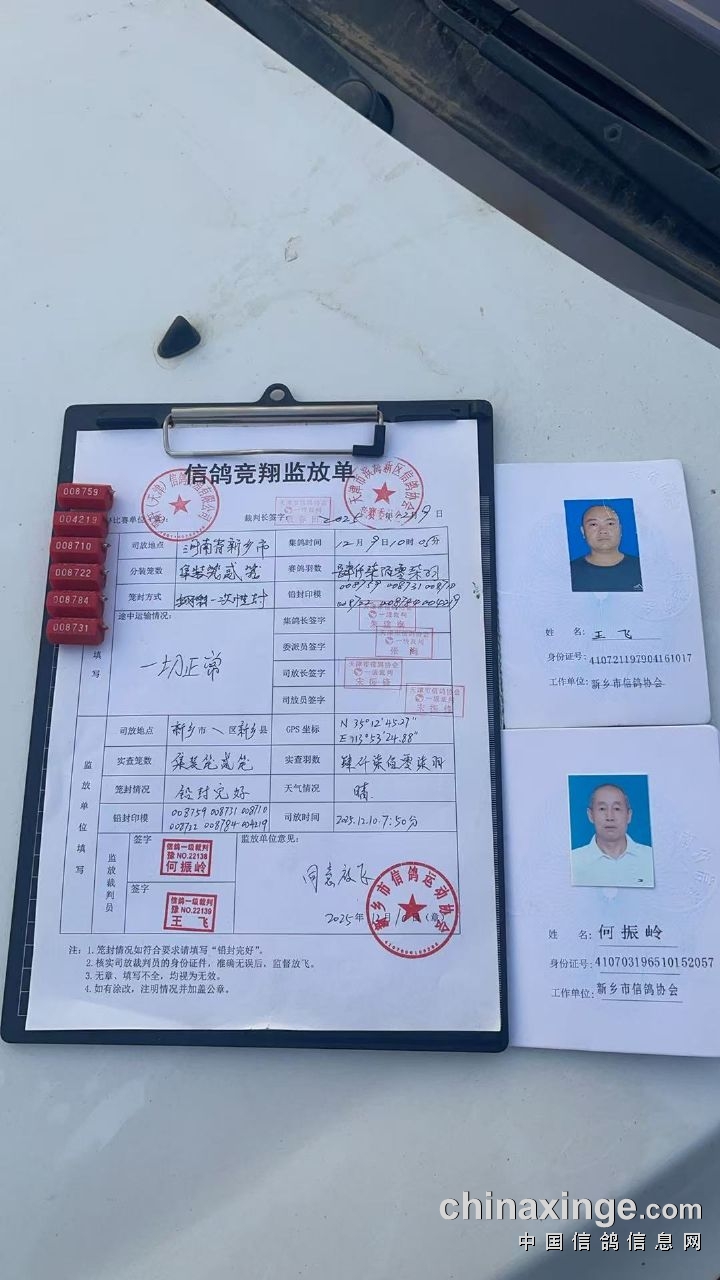 信鸽竞翔监放单
裁判长签字:
2025年12月9日
司放地点 河南省新乡市 集鸽时间 12月9日10时05分
分装笼数 集装笼贰笼 赛鸽羽数 肆仟柒佰零柒羽
笼封方式 一次性封 铅封印模 008759 008731 008710
008722 008784 004219
途中运输情况: 集鸽长签字
一切正常 委派员签字
司放长签字
司放员签字
填写
司放地点 新乡市\区新乡县 GPS 坐标 N 35°12'45.27"
E 113°53'24.88"
实查笼数 集装笼贰笼 实查羽数 肆仟柒佰零柒羽
笼封情况 铅封完好 天气情况 晴
铅封印模 008759 008731 008710 司放时间 2025.12.10.7:50分
008722 008784 004219
监放单位填写
监放裁判员
签字 监放单位意见:
信鸽一级裁判
豫 NO.22138
何振岭
同意放飞
签字
信鸽一级裁判
豫 NO.22139
王飞
2025年12月10日(章)
新乡市信鸽运动协会
注: 1. 笼封情况如符合要求请填写“铅封完好”。
2. 核实司放裁判员的身份证件,准确无误后,监督放飞。
3. 无章、填写不全,均视为无效。
4. 如有涂改,注明情况并加盖公章。
008759
004219
008710
008722
008784
008731
姓 名: 王飞
身份证号: 410721197904161017
工作单位: 新乡市信鸽协会
姓 名: 何振岭
身份证号: 410703196510152057
工作单位: 新乡市信鸽协会
chinaxinge.com
中国信鸽信息网